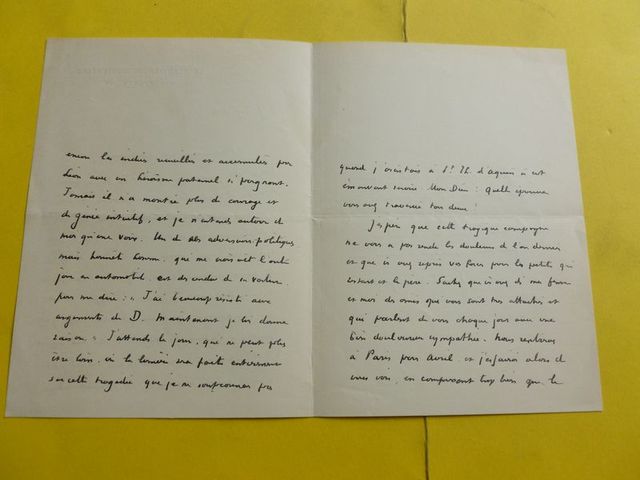 encore les indices recueillis et accumulés par
Léon avec un héroïsme paternel si poignant.
Jamais il n'a montré plus de courage et
de génie intuitif, et je n'entends autour de
moi qu'une voix. Un de ses adversaires politiques
mais honnête homme, qui me croisait l'autre
jour en automobile, est descendu de sa voiture
pour me dire : « J'ai beaucoup résisté aux
arguments de D. Maintenant je lui donne
raison. » J'attends le jour, que ne peut plus
être loin, où la lumière sera faite entièrement
sur cette tragédie que je ne soupçonnais pas
quand j'assistais à St Th. d'Aquin à cet
émouvant service. Mon Dieu ! Quelle épreuve
vous avez traversée tous deux !
J'espère que cette tragique campagne
ne vous a pas rendu les douleurs de l'an dernier
et que vous repris vos forces pour les petits qui
restent et le père. Sachez que vous avez ma femme
et moi des amis qui vous sont très attachés et
qui parlent de vous chaque jour avec une
bien douloureuse sympathie. Nous rentrerons
à Paris pour avril et j'essaierai alors de
vous voir, en comprenant trop bien que le